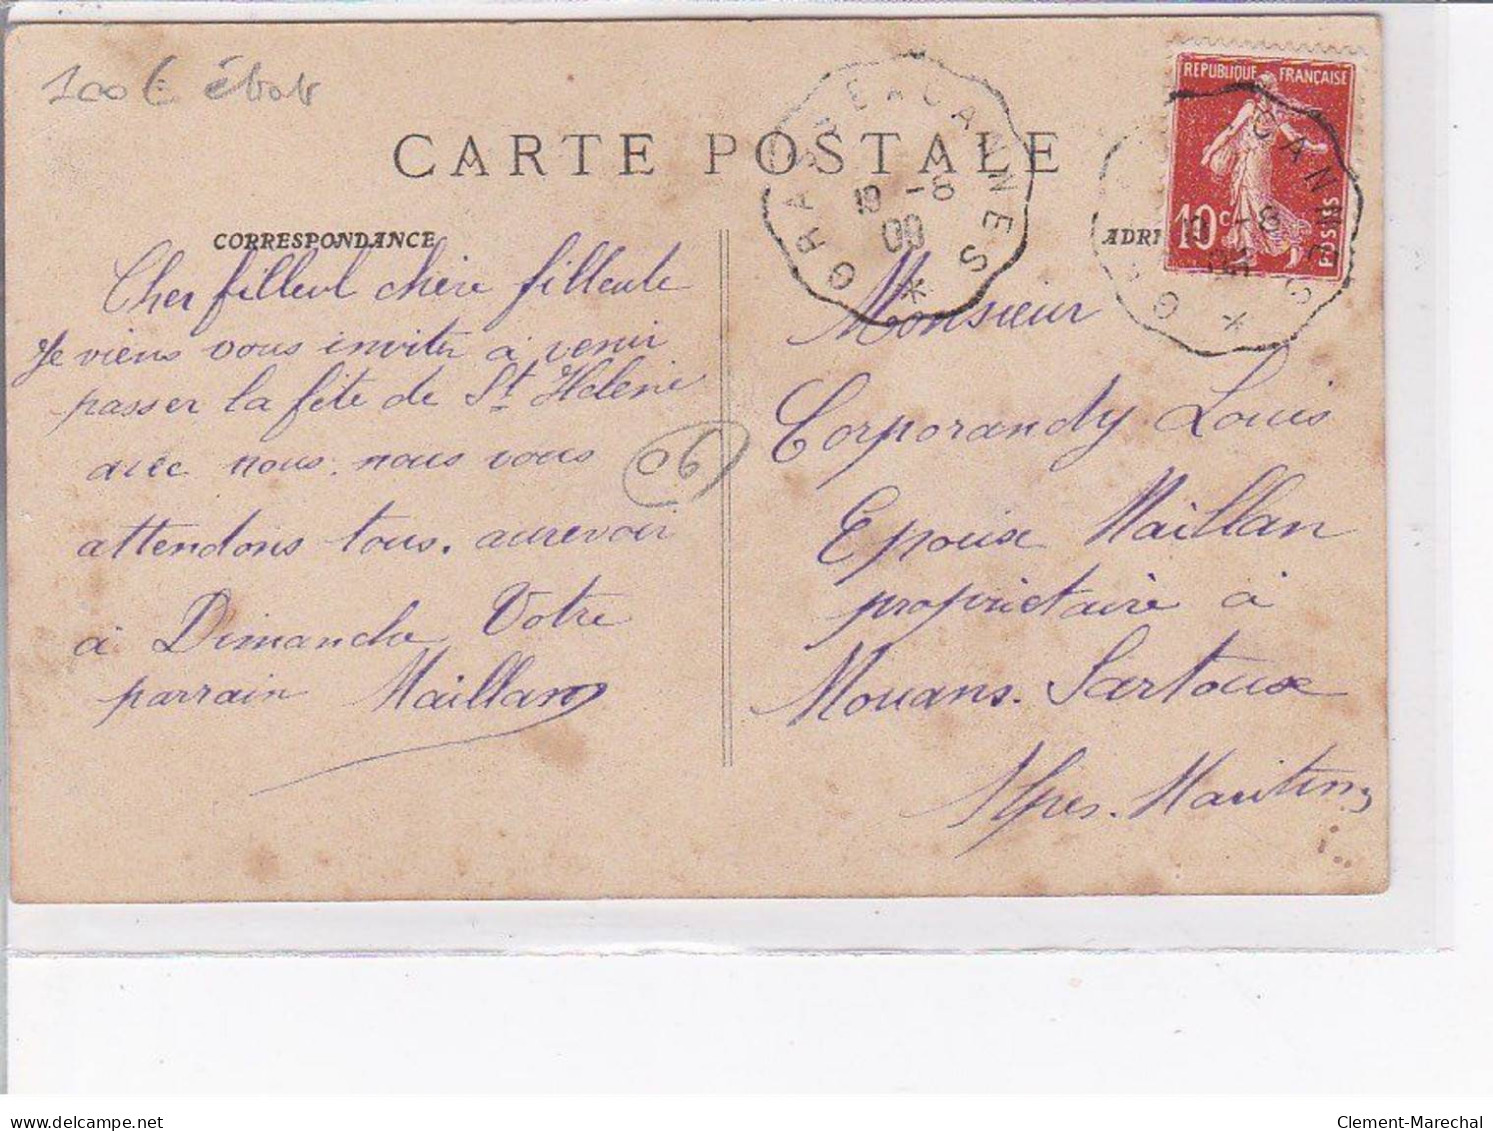 100 €
CARTE POSTALE
GRASSE A CANNES
19 -8
09
*
REPUBLIQUE FRANÇAISE
10c
POSTES
CANNES
-8
*
CORRESPONDANCE
ADR
Cher filleul chère filleule
Je viens vous inviter à venir
passer la fête de St Helene
avec nous. nous vous
attendons tous. aurevoir
à Dimanche Votre
parrain Maillan
06
Monsieur
Corporandy Louis
Epoux Maillan
propriétaire à
Mouans. Sartoux
Alpes. Maritimes
Clement-Marechal
delcampe.net